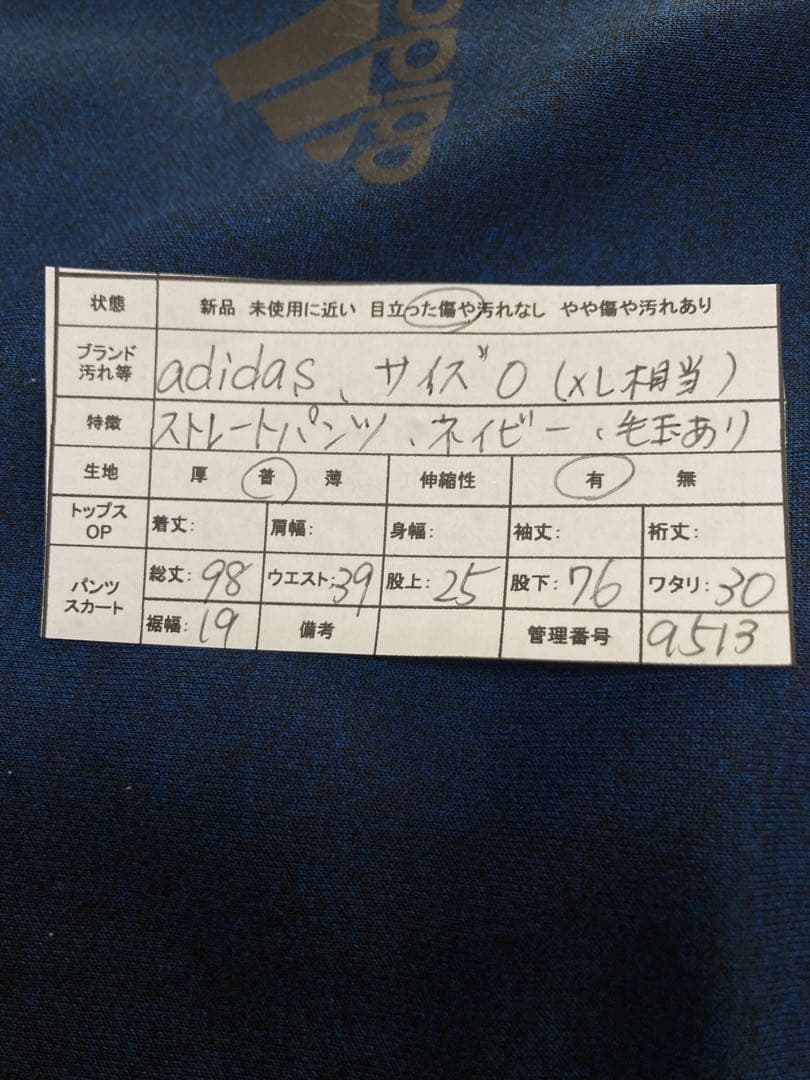 adidas
状態 新品 未使用に近い 目立った傷や汚れなし やや傷や汚れあり
ブランド
汚れ等 adidas、サイズO(XL相当)
特徴 ストレートパンツ、ネイビー、毛玉あり
生地 厚 普 薄 伸縮性 有 無
トップス
OP 着丈: 肩幅: 身幅: 袖丈: 裄丈:
パンツ
スカート 総丈:98 ウエスト:39 股上:25 股下:76 ワタリ:30
裾幅:19 備考 管理番号 9513